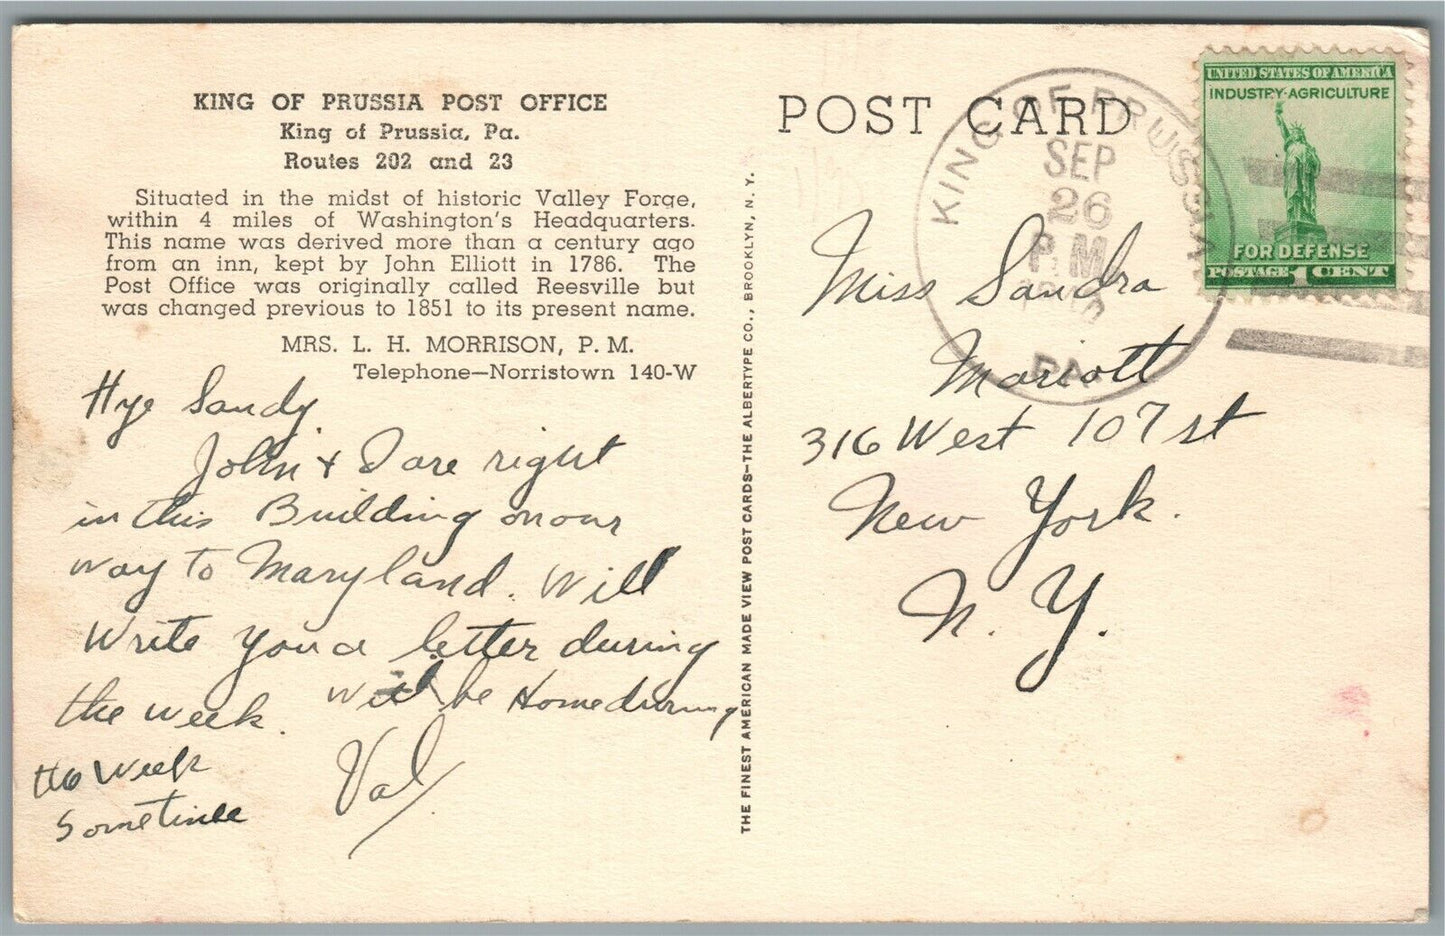 KING OF PRUSSIA POST OFFICE
King of Prussia, Pa.
Routes 202 and 23
Situated in the midst of historic Valley Forge,
within 4 miles of Washington's Headquarters.
This name was derived more than a century ago
from an inn, kept by John Elliott in 1786. The
Post Office was originally called Reesville but
was changed previous to 1851 to its present name.
MRS. L. H. MORRISON, P. M.
Telephone—Norristown 140-W
Hye Sandy.
John + I are right
in this Building on our
way to Maryland. Will
Write you a letter during
the week. Will be Home during
the Week
Sometime
Val.
THE FINEST AMERICAN MADE VIEW POST CARDS—THE ALBERTYPE CO., BROOKLYN, N. Y.
POST CARD
KING OF PRUSSIA
SEP
26
P.M.
PA.
UNITED STATES OF AMERICA
INDUSTRY·AGRICULTURE
FOR DEFENSE
POSTAGE 1 CENT
Miss Sandra
Mariott
316 West 107 st
New York.
N. Y.